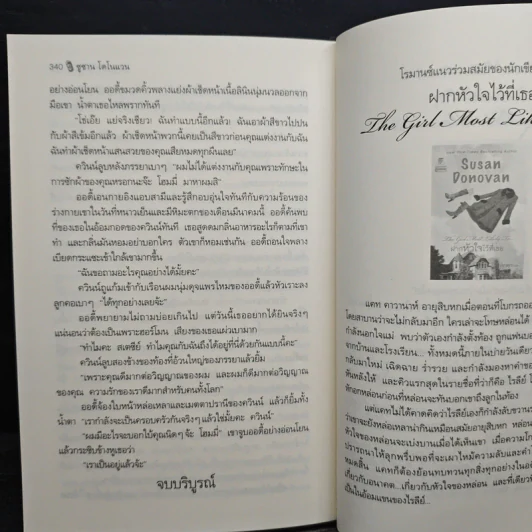 340 ซูซาน โดโนแวน
อย่างอ่อนโยน ออดี้ขมวดคิ้วพลางแย่งผ้าเช็ดหน้าเนื้อลินินนุ่มนวลออกจาก
มือเขา น้ำตาเธอไหลพรากทันที
"โซ่เอ๊ย แย่จริงเชียว! ฉันทำแบบนี้อีกแล้ว! ฉันเอาผ้าสีขาวไปปน
กับผ้าสีเข้มอีกแล้ว ผ้าเช็ดหน้าพวกนี้เคยเป็นสีขาวก่อนคุณแต่งงานกับฉัน
ฉันทำผ้าเช็ดหน้าแสนสวยของคุณเสียหมดทุกผืนเลย"
ควินน์ลูบหลังภรรยาเบาๆ "ผมไม่ได้แต่งงานกับคุณเพราะทักษะใน
การซักผ้าของคุณหรอกนะจ๊ะ โฮมมี่ มาหาผมสิ"
ออดี้เอนกายอิงแอบสามีและรู้สึกอบอุ่นใจทันทีกับความร้อนของ
ร่างกายเขาในวันที่หนาวเย็นและมีหิมะตกของเดือนมีนาคมนี้ ออดี้ค้นพบ
ที่ของเธอในอ้อมกอดของควินน์ทันที เธอสูดดมกลิ่นอาหารอะไรก็ตามที่เขา
ทำ และกลิ่นมันหอมอย่าบอกใคร ตัวเขาก็หอมเช่นกัน ออดี้ถอนใจพลาง
เบียดกระแซะเข้าใกล้เขามากขึ้น
"ฉันขอถามอะไรคุณอย่างได้มั้ยคะ"
ควินน์ถูแก้มเข้ากับเรือนผมนุ่มดุจแพรไหมของออดี้แล้วหัวเราะลง
ลูกคอเบาๆ "ได้ทุกอย่างเลยจ้ะ"
ออดี้พยายามไม่ถามบ่อยเกินไป แต่วันนี้เธออยากได้ยินจริงๆ
แน่นอนว่าต้องเป็นเพราะฮอร์โมน เสียงของเธอแผ่วเบามาก
"ทำไมคะ สเตซีย์ ทำไมคุณกับฉันถึงได้อยู่ที่นี่ด้วยกันแบบนี้คะ"
ควินน์ลูบสองข้างของท้องที่อ้วนใหญ่ของภรรยาแล้วยิ้ม
"เพราะคุณดีมากต่อวิญญาณของผม และผมก็ดีมากต่อวิญญาณ
ของคุณ ความรักของเราดีมากสำหรับคนทั้งโลก"
ออดี้จ้องใบหน้าหล่อเหลาและเมตตาปรานีของควินน์ แล้วก็ยิ้มทั้ง
น้ำตา "เรากำลังจะเป็นครอบครัวกันจริงๆ แล้วใช่มั้ยคะ ควินน์"
"ผมมีอะไรจะบอกไม้คุณนิดๆ จ้ะ โฮมมี่" เขาจูบออดี้อย่างอ่อนโยน
แล้วกระซิบข้างหูเธอว่า
"เราเป็นอยู่แล้วจ้ะ"
จบบริบูรณ์
โรมานซ์แนวร่วมสมัยของนักเขีย
ฝากหัวใจไว้ที่เธอ
The Girl Most Lik
Susan
Donovan
ฝากหัวใจไว้ที่เธอ
แคท คาวานาห์ อายุสิบหกเมื่อตอนที่โบกรถออก
โดยสาบานว่าจะไม่กลับมาอีก ใครเล่าจะโทษหล่อนได้
กำลังนอกใจแม่ พบว่าตัวเองกำลังตั้งท้อง ถูกแฟนบอก
จากบ้านและโรงเรียน... ทั้งหมดนี้ภายในบ่ายวันเดียว
กลับมาใหม่ เฉิดฉาย ร่ำรวย และกำลังมองหาคำขอ
หันหลังให้ และคิวแรกสุดในรายชื่อที่ว่าก็คือ ไรลีย์
หักอกหล่อนก่อนที่หล่อนจะทันบอกเขาถึงลูกในท้อง
แต่แคทไม่ได้คาดคิดว่าไรลีย์เองก็กำลังสับสน
ว่าเขาจะยังหล่อเหลาน่ากินเหมือนสมัยอายุสิบหก
หัวใจของหล่อนจะเบ่งบานเมื่อได้เห็นเขา เมื่อความโก
ปรารถนาให้ลูกพรั่งพร้อมจะเผาไหม้ความลับและคำ
หมดสิ้น แคทก็ต้องย้อนทบทวนทุกสิ่งทุกอย่างใน
เกี่ยวกับอนาคต...เกี่ยวกับหัวใจของหล่อน และที่เดียว
เป็นในอ้อมแขนของไรลีย์...